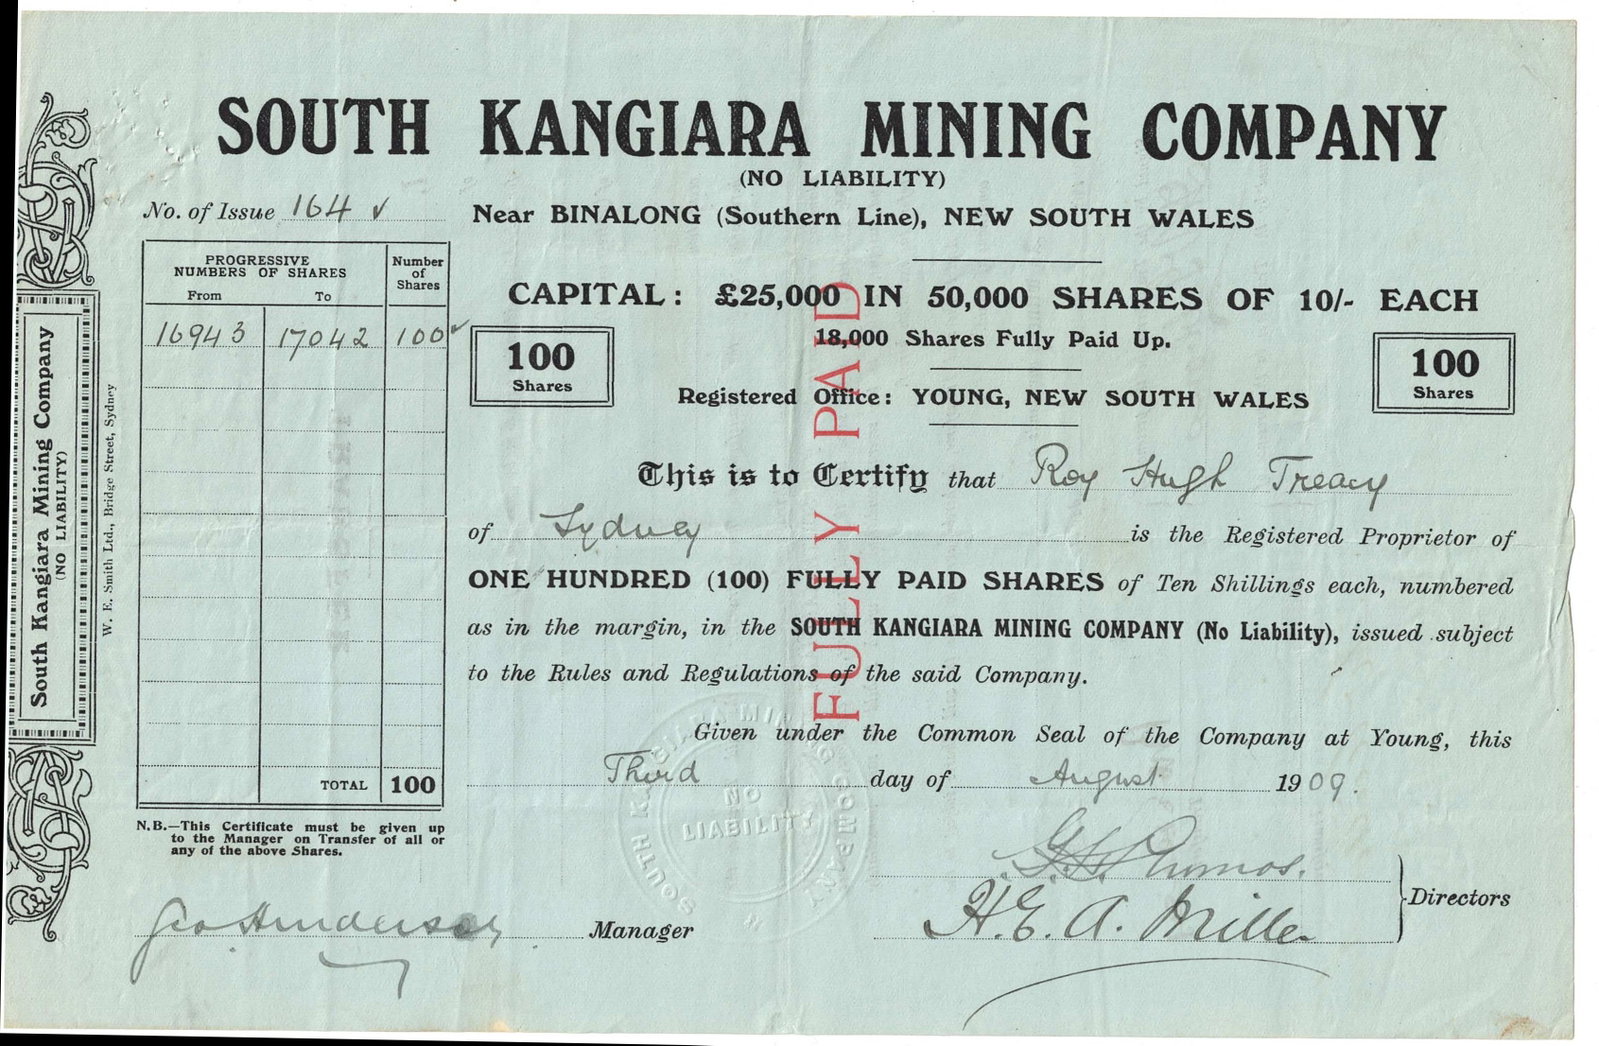 SOUTH KANGIARA MINING COMPANY
(NO LIABILITY)
No. of Issue 164 ✓
Near BINALONG (Southern Line), NEW SOUTH WALES
PROGRESSIVE
NUMBERS OF SHARES
From To
Number
of
Shares
16943 17042 100 ✓
TOTAL 100
N.B.—This Certificate must be given up
to the Manager on Transfer of all or
any of the above Shares.
CAPITAL: £25,000 IN 50,000 SHARES OF 10/- EACH
18,000 Shares Fully Paid Up.
100
Shares
100
Shares
Registered Office: YOUNG, NEW SOUTH WALES
This is to Certify that Roy Hugh Treacy
of Sydney is the Registered Proprietor of
ONE HUNDRED (100) FULLY PAID SHARES of Ten Shillings each, numbered
as in the margin, in the SOUTH KANGIARA MINING COMPANY (No Liability), issued subject
to the Rules and Regulations of the said Company.
Given under the Common Seal of the Company at Young, this
Third day of August 1909.
FULLY PAID
SOUTH KANGIARA MINING COMPANY
NO
LIABILITY
Geo Henderson Manager
H. E. A. Miller
Directors
South Kangiara Mining Company
(NO LIABILITY)
W. E. Smith Ltd., Bridge Street, Sydney